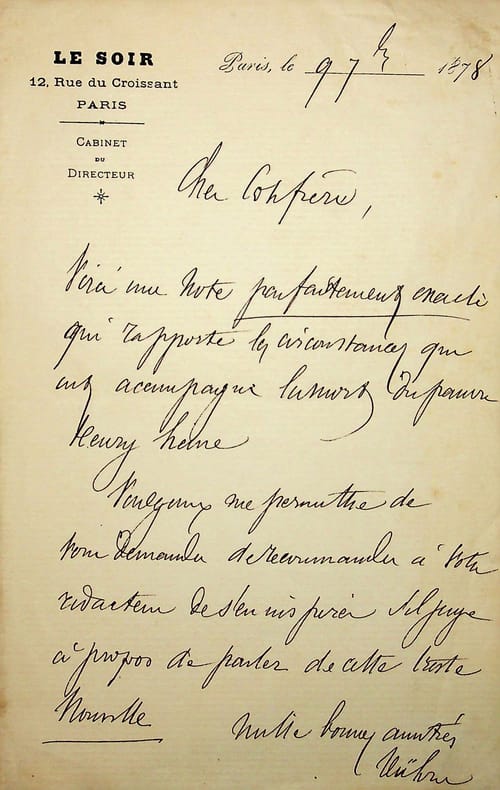 LE SOIR
12, Rue du Croissant
PARIS
CABINET
DU
DIRECTEUR
Paris, le 9 7bre 1878
Cher Confrère,
Voici une note parfaitement exacte
qui rapporte les circonstances qui
ont acompagné la mort du pauvre
Henry
Voulez vous me permettre de
vous demander de recommander à votre
rédacteur de s'en inspirer s'il juge
à propos de parler de cette triste
Nouvelle
mille bonnes amitiés